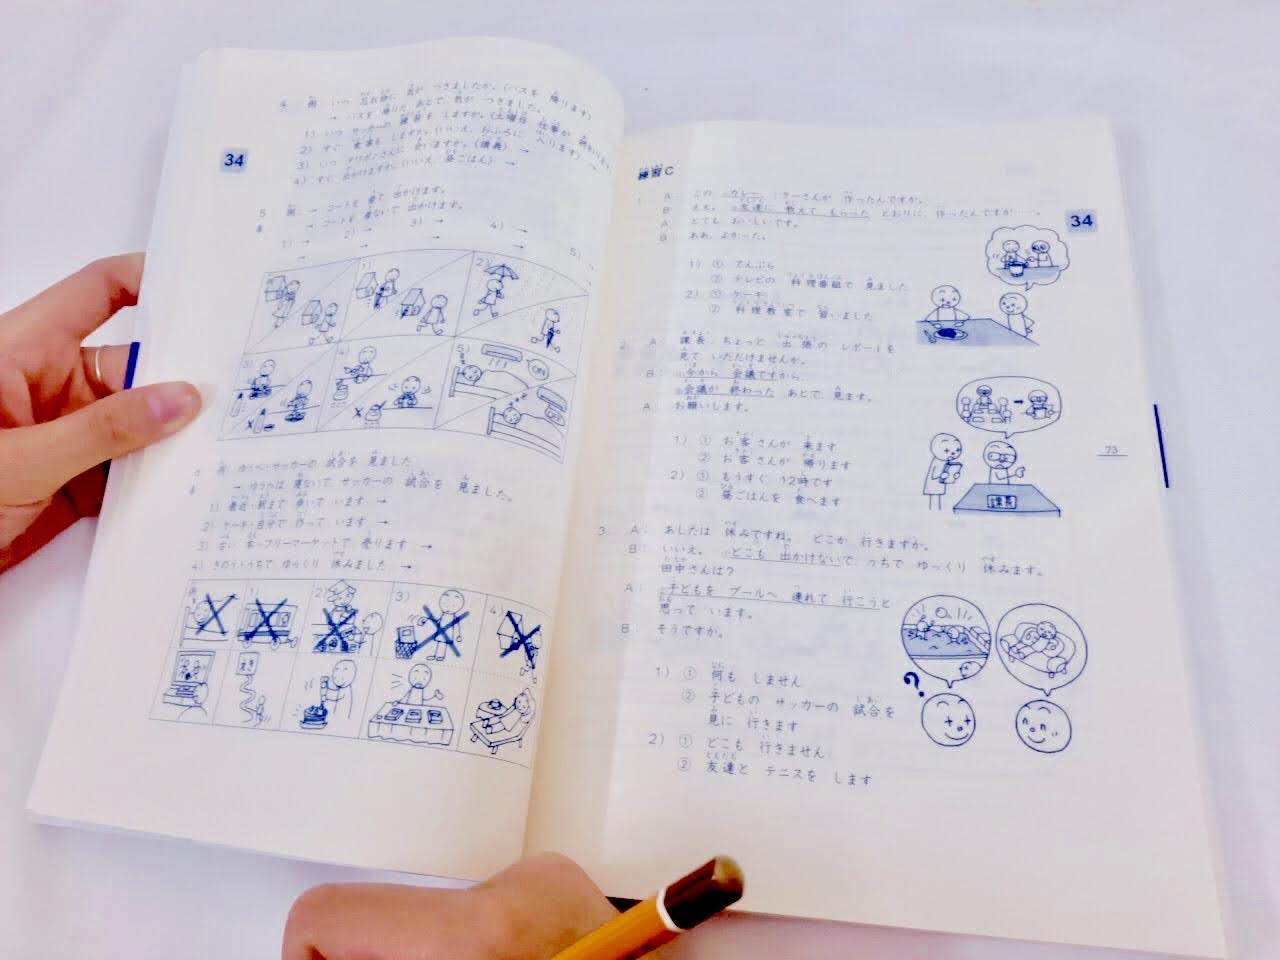 34
4. 例：いつ 忘れ物に 気が つきましたか。(バスを 降ります)
→ バスを 降りた あとで、気が つきました。
1) いつ サッカーの 練習を しますか。(土曜日 仕事が 終わります) →
2) すぐ 食事を しますか。(いいえ、おふろに 入ります) →
3) いつ ワゴンさんに 会いますか。(講義) →
4) すぐ 出かけますか。(いいえ、昼ごはん) →
5. 例：→ コートを 着て 出かけます。
→ コートを 着ないで 出かけます。
1) → 2) → 3) → 4) → 5) →
→ → → →
1) 2)
3) 4) 5)
例：ゆうべ・サッカーの 試合を 見ました
→ ゆうべは 寝ないで、サッカーの 試合を 見ました。
1) 最近・駅まで 歩いて います →
2) ケーキ・自分で 作って います →
3) 古い 本・フリーマーケットで 売ります →
4) きのう・うちで ゆっくり 休みました →
例 1) 2) 3) 4)
練習C
34
1. A：この ①カレー、ミラーさんが 作ったんですか。
B：ええ。②友達に 教えて もらった とおりに、作ったんですが……。
A：とても おいしいです。
B：ああ、よかった。
1) ① てんぷら
② テレビの 料理番組で 見ました
2) ① ケーキ
② 料理教室で 習いました
2. A：課長、ちょっと 出張の レポートを
見て いただけませんか。
B：①今から 会議ですから、
②会議が 終わった あとで、見ます。
A：お願いします。
1) ① お客さんが 来ます
② お客さんが 帰ります
2) ① もうすぐ 12時です
② 昼ごはんを 食べます
課長
73
3. A：あしたは 休みですね。どこか 行きますか。
B：いいえ。①どこも 出かけないで、うちで ゆっくり 休みます。
田中さんは？
A：②子どもを プールへ 連れて 行こうと
思って います。
B：そうですか。
1) ① 何も しません
② 子どもの サッカーの 試合を
見に 行きます
2) ① どこも 行きません
② 友達と テニスを します